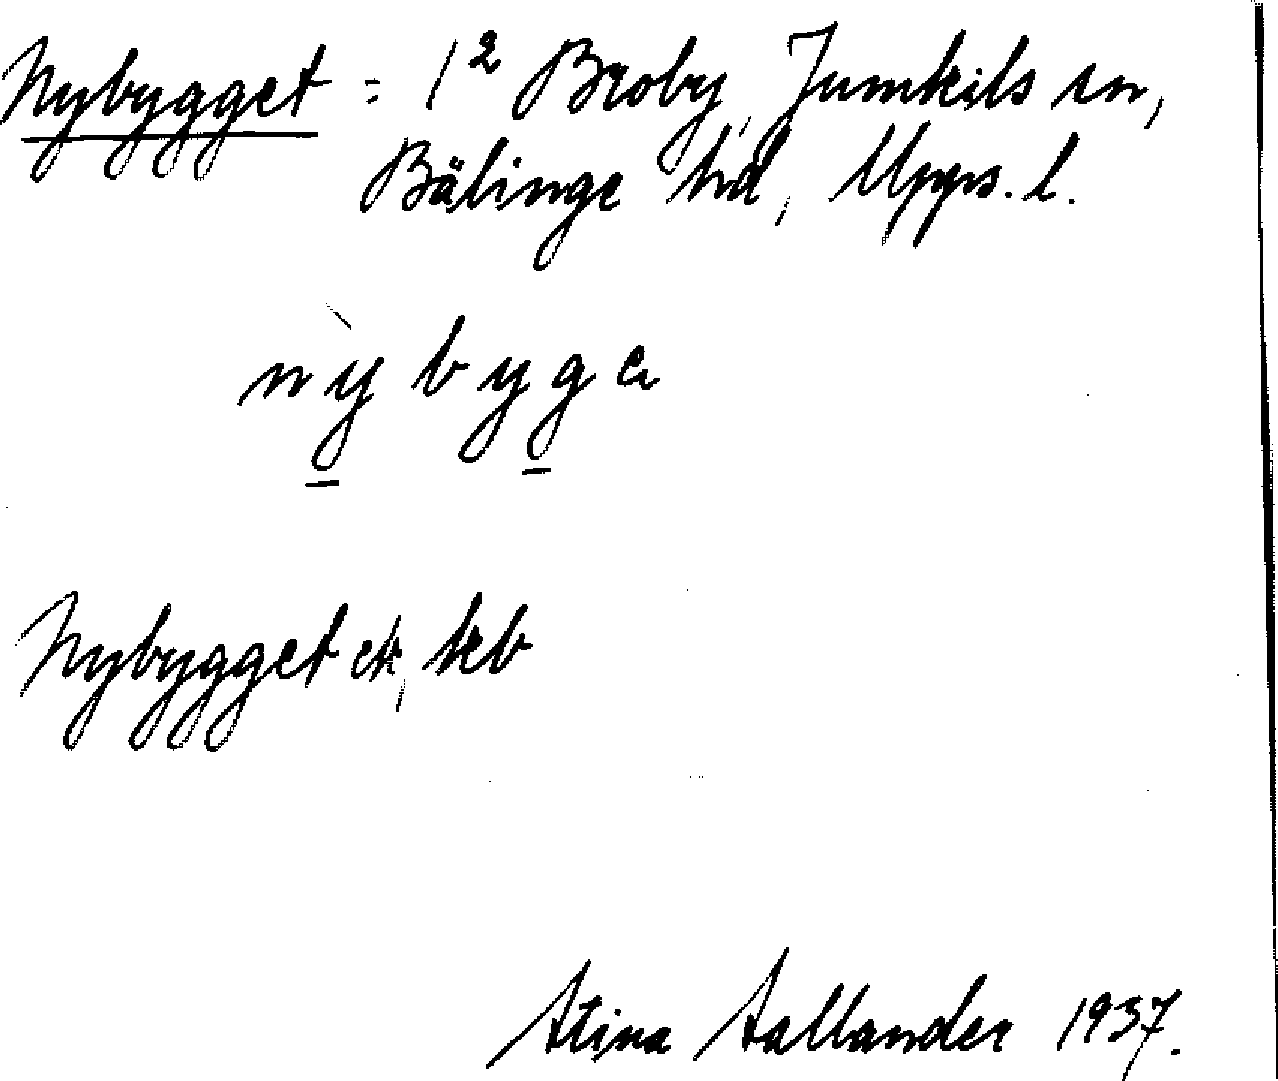 Nybygget = 1² Broby, Jumkils sn,
Bälinge hd, Upps. l.
nỳbyge
Nybygget ek, kb
Stina Sallander 1937.